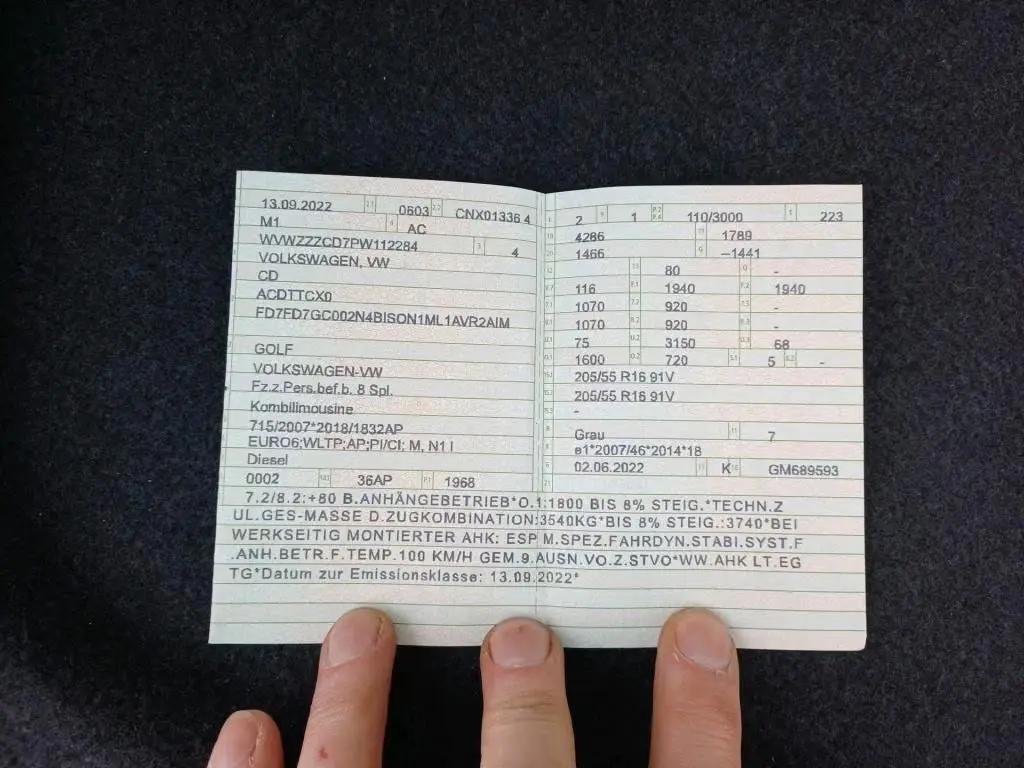 13.09.2022 2.1 0603 2.2 CNX01336 4
M1 AC
WVWZZZCD7PW112284 3 4
VOLKSWAGEN, VW
CD
ACDTTCX0
FD7FD7GC002N4BISON1ML1AVR2AIM
GOLF
VOLKSWAGEN-VW
Fz.z.Pers.bef.b. 8 Spl.
Kombilimousine
715/2007*2018/1832AP
EURO6;WLTP;AP;PI/CI; M, N1 I
Diesel
0002 36AP P.1 1968
2 1 P.2 P.4 110/3000 T 223
4286 1789
1466 –1441
80 Q -
116 F.1 1940 F.2 1940
1070 920 -
1070 8.2 920 8.3 -
75 U.2 3150 U.3 68
1600 O.2 720 S.1 5 S.2 -
205/55 R16 91V
205/55 R16 91V
-
Grau 11 7
e1*2007/46*2014*18
02.06.2022 17 K 16 GM689593
21
7.2/8.2:+80 B.ANHÄNGEBETRIEB*O.1:1800 BIS 8% STEIG.*TECHN.Z
UL.GES-MASSE D.ZUGKOMBINATION:3540KG*BIS 8% STEIG.:3740*BEI
WERKSEITIG MONTIERTER AHK: ESP M.SPEZ.FAHRDYN.STABI.SYST.F
.ANH.BETR.F.TEMP.100 KM/H GEM.9.AUSN.VO.Z.STVO*WW.AHK LT.EG
TG*Datum zur Emissionsklasse: 13.09.2022*